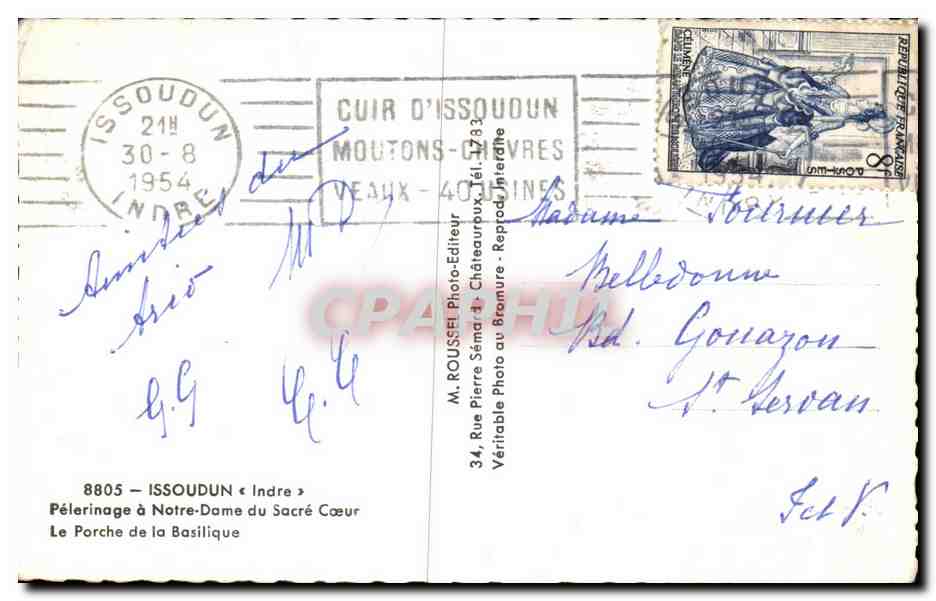 ISSOUDUN
21H
30 - 8
1954
INDRE
CUIR D'ISSOUDUN
MOUTONS-CHEVRES
VEAUX - 40 USINES
REPUBLIQUE FRANÇAISE
8F
POSTES
CÉLIMÈNE
Amitiés du
M. ROUSSEL Photo-Editeur
34, Rue Pierre Sémard - Châteauroux, Tél. 1783
Véritable Photo au Bromure - Reprod. Interdite
Madame Fournier
Belledonne
Bd. Gouazon
St Servan
I et V.
G.G
CPARPHIL
8805 — ISSOUDUN « Indre »
Pélerinage à Notre-Dame du Sacré Cœur
Le Porche de la Basilique